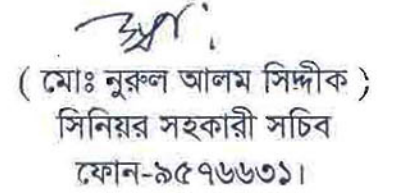 ( মোঃ নুরুল আলম সিদ্দীক )
সিনিয়র সহকারী সচিব
ফোন-৯৫৭৬৬৩১।